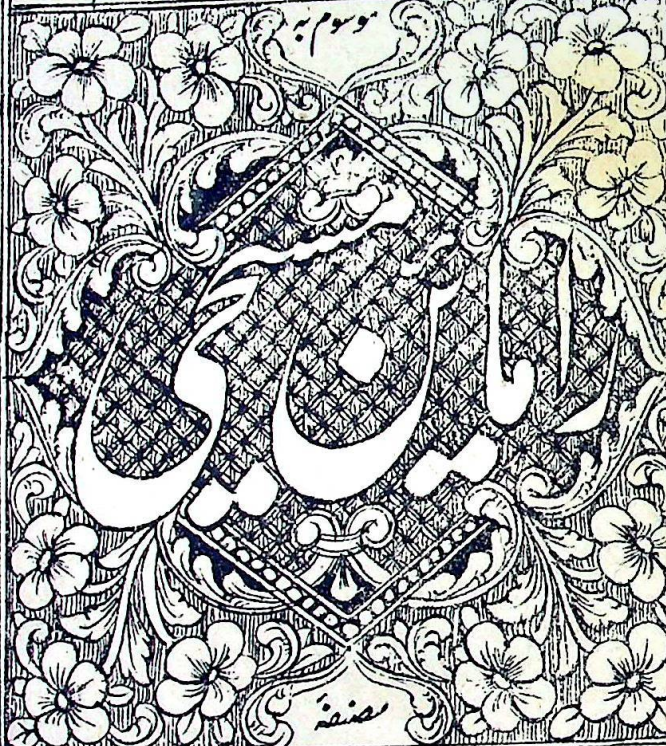 موسوم بہ
راماین مسیحی
مصنفہ